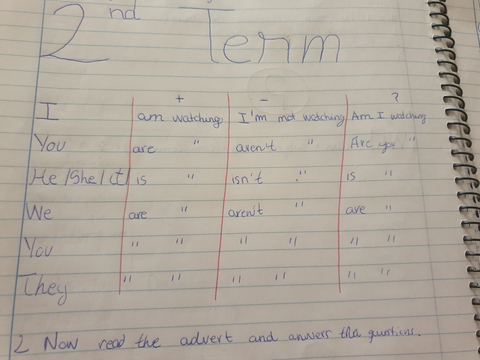 2nd Term
+ - ?
I am watching I'm not watching Am I watching
You are " aren't " Are you "
He/She/it is " isn't " is "
We are " aren't " are "
You " " " " " "
They " " " " " "
2 Now read the advert and answers the questions.